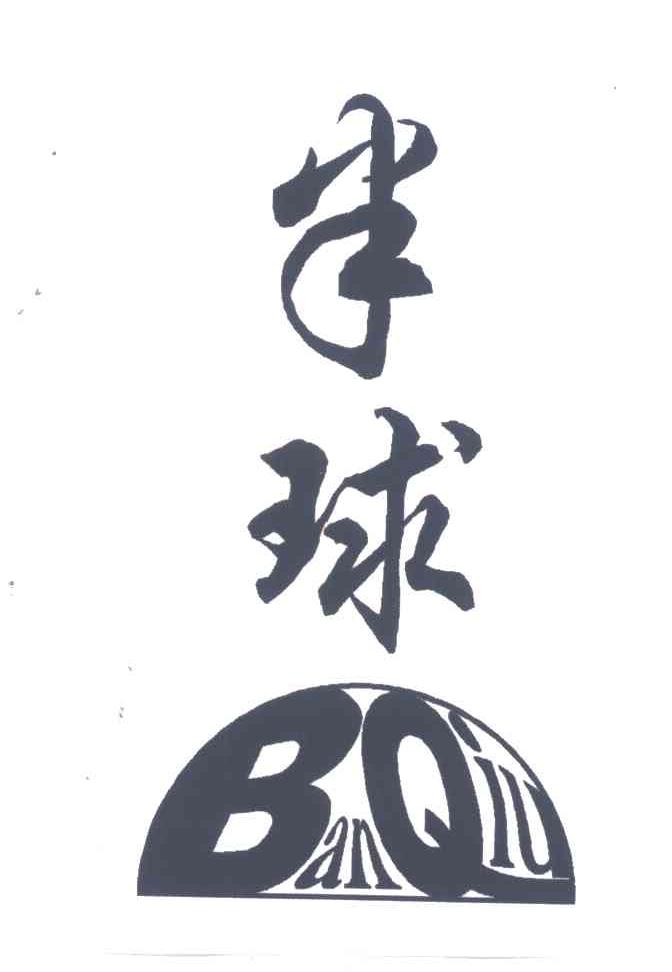 半
球
BanQiu